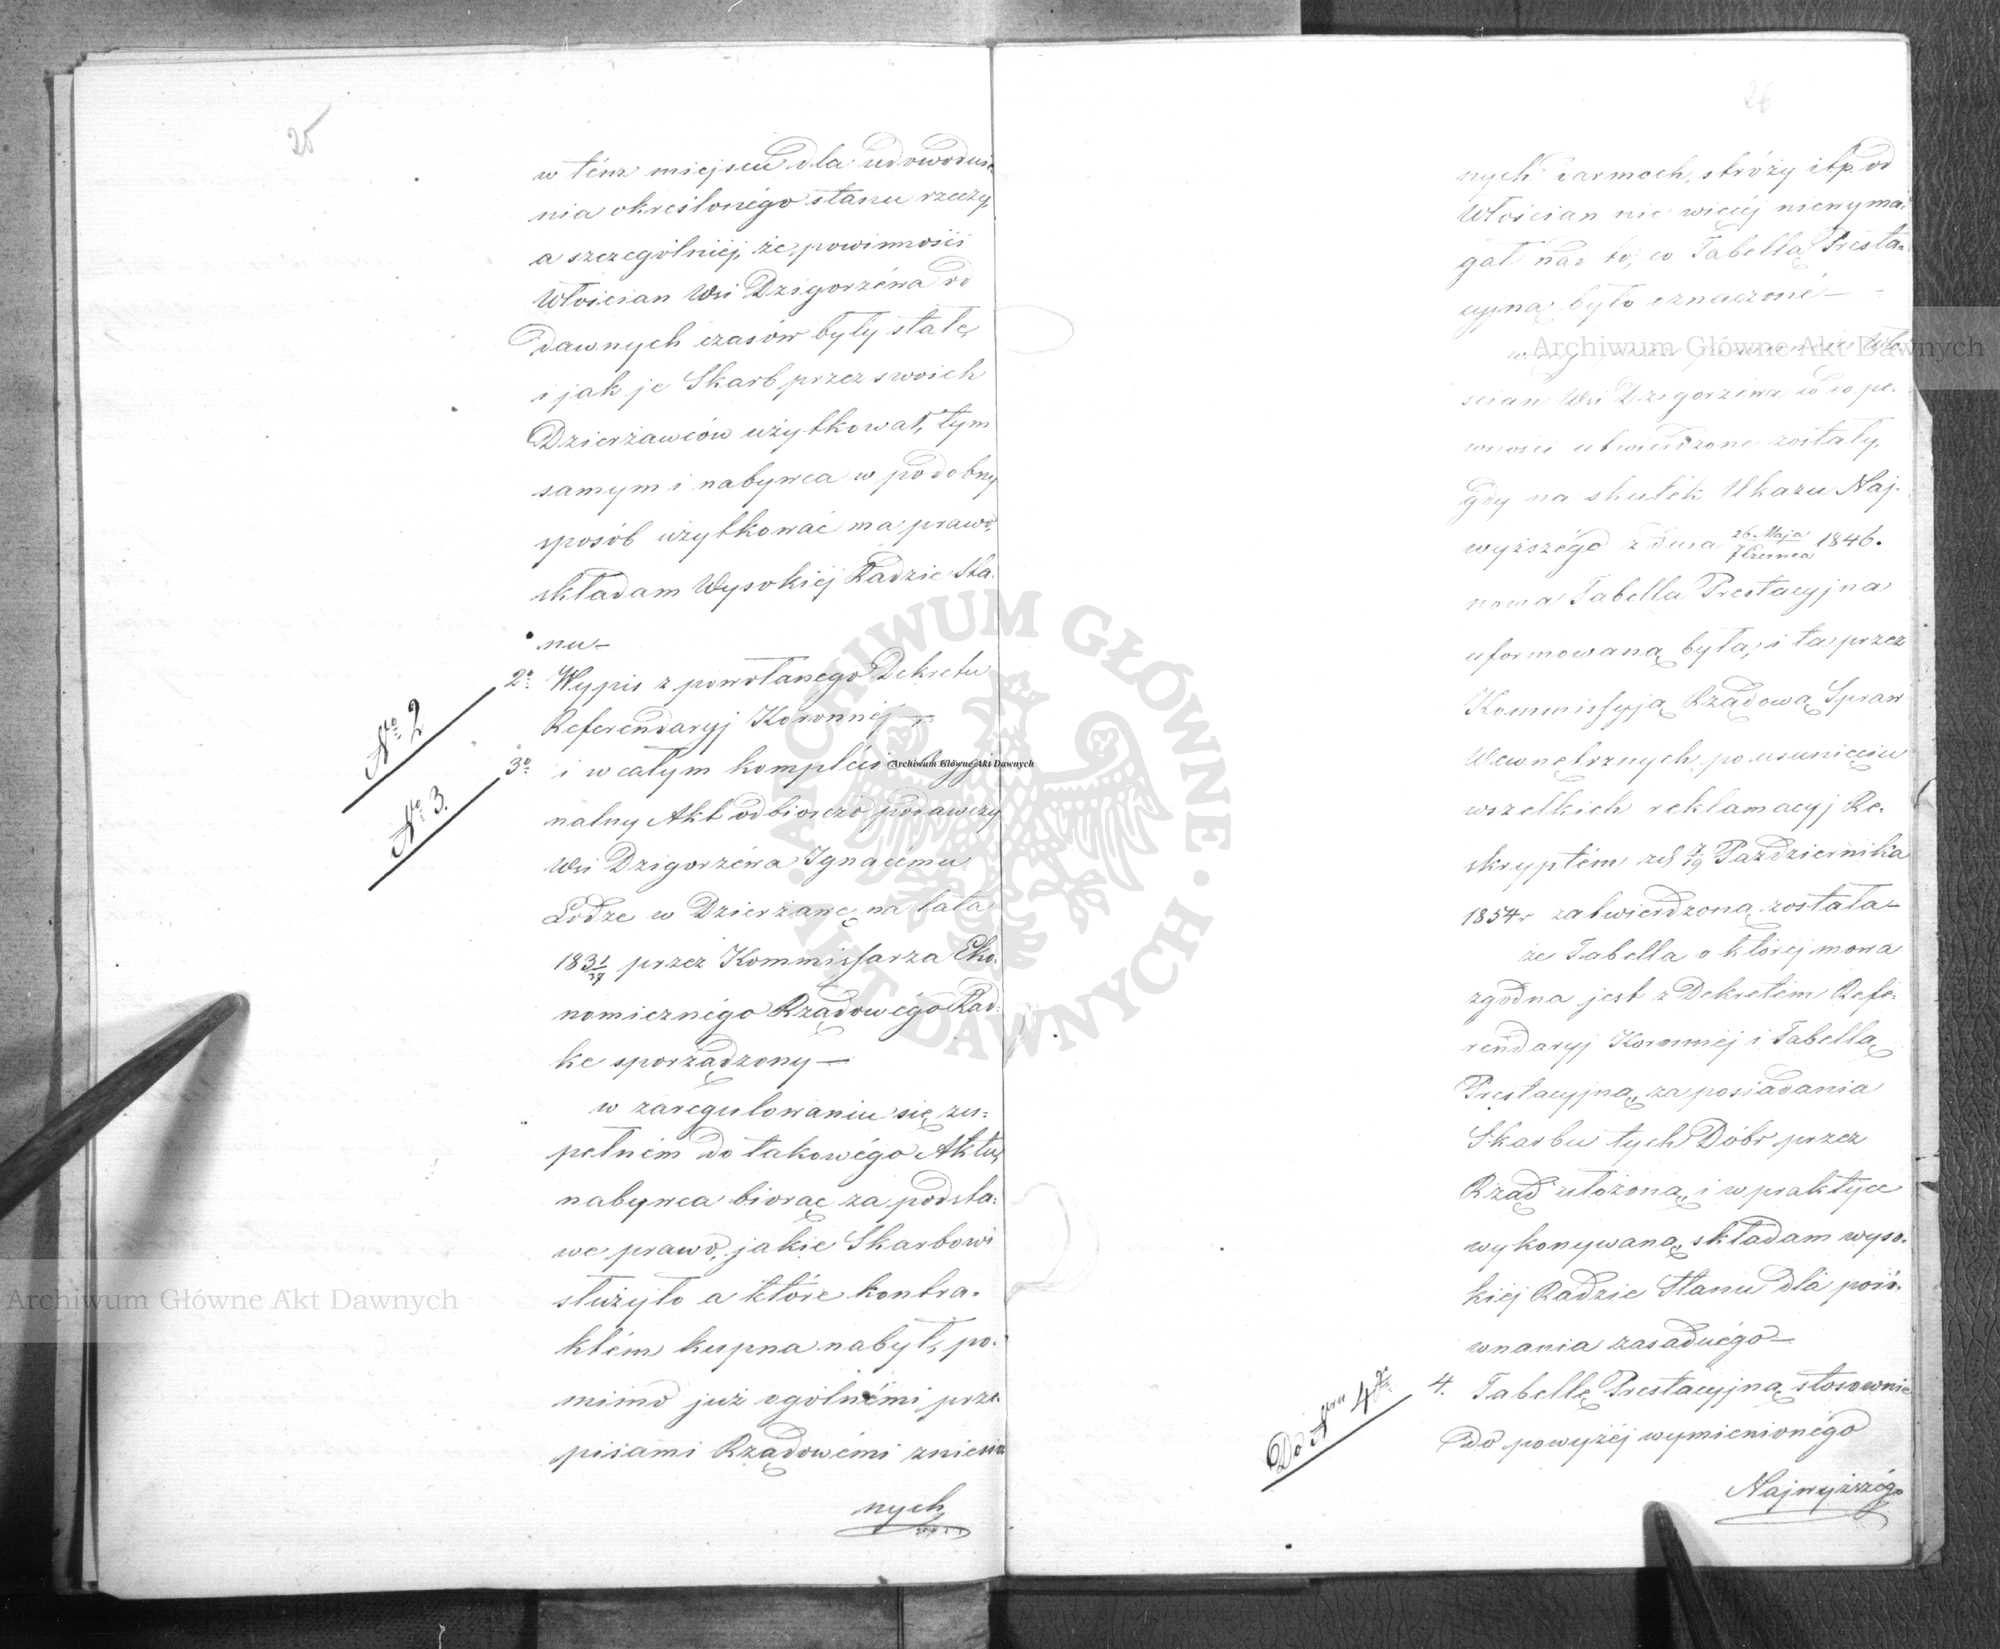 25
w tém miejscu dla udowodnie-
nia określonégo stanu rzeczy,
a szczególniéj, że powinności
Włościan Wsi Dzigorzéwa od
dawnych czasów były stałe,
i jak je Skarb przez swoich
Dzierżawców użytkował, tym
samym i nabywca w podobny
sposób użytkować ma prawo,
składam Wysokiéj Radzie Sta-
nu—
No 2
2o Wypis z powołanego Dekretu
Referendaryj Koronnéj—
No 3.
3o i w całym komplecie
nalny Akt odbiorczo podawczy
Wsi Dzigorzéwa Ignacému
Łodze w Dzierżawę na lata
1831/37 przez Kommissarza Eko-
nomicznégo Rządowégo Rad-
ke sporządzony—
w zaregulowaniu się zu-
pełném do takowégo Aktu,
nabywca biorąc za podsta-
wę prawo, jakie Skarbowi
służyło a które kontra-
ktém kupna nabył, po-
mimo już ogólnémi prze-
pisami Rządowémi zniesio
nych
26
nych darmoch, stróży itp. od
Włościan nic więcéj niewyma-
gał nad to, co Tabellą Presta-
cyjną było oznaczoné—
ścian Wsi Dzigorzéwa co do pe-
wności utwierdzone zostały,
gdy na skuték Ukazu Naj-
wyższégo z dnia 26 Maja / 7 Czerwca 1846.
nowa Tabella Prestacyjna
uformowaną była, i ta przez
Kommissyją Rządową Spraw
Wewnętrznych, po usunięciu
wszelkich reklamacyj Re-
skryptém zd 7/19 Października
1854r zatwierdzoną została—
że Tabella o któréj mowa
zgodna jest z Dekretém Refe-
rendaryj Koronnéj i Tabellą
Prestacyjną, za posiadania
Skarbu tych Dóbr przez
Rząd ułożoną, i w praktyce
wykonywaną, składam wyso-
kiéj Radzie Stanu dla poró-
wnania zasadnégo—
Do Nru 4go
4. Tabellę Prestacyjną stosownie
do powyżéj wymienionégo
Najwyższégo
Archiwum Główne Akt Dawnych
Archiwum Główne Akt Dawnych
Archiwum Główne Akt Dawnych
ARCHIWUM GŁÓWNE · AKT DAWNYCH ·